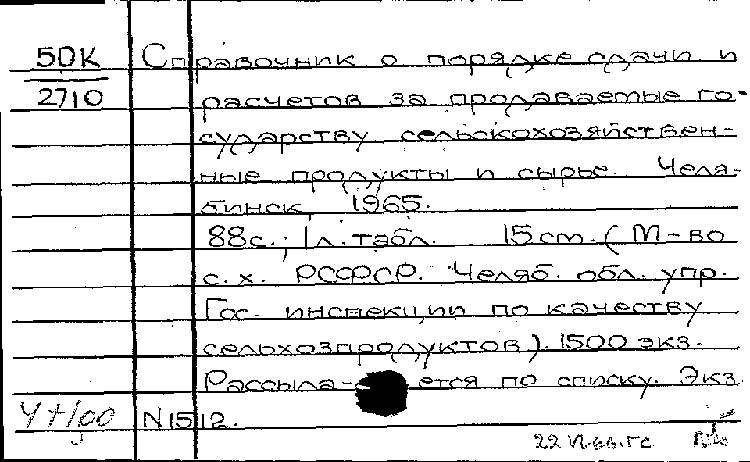 5DK Справочник о порядке сдачи и
2710 расчетов за продаваемые го-
сударству сельскохозяйствен-
ные продукты и сырье. Челя-
бинск, 1965.
88с.; 1л.табл. 15см. (М-во
с.х. РСФСР. Челяб. обл. упр.
Гос. инспекции по качеству
сельхозпродуктов). 1500 экз.
Рассыла- ется по списку. Экз.
N1512.